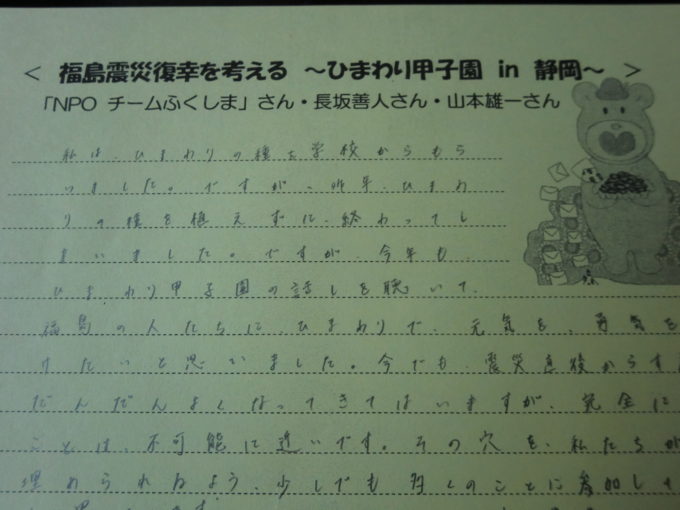 ＜ 福島震災復幸を考える ～ひまわり甲子園 in 静岡～ ＞
「NPO チームふくしま」さん・長坂善人さん・山本雄一さん
私は、ひまわりの種を学校からもら
いました。ですが、昨年、ひまわ
りの種を植えずに、終わってし
まいました。ですが、今年も、
ひまわり甲子園の話しを聴いて、
福島の人たちに、ひまわりで、元気を、勇気を
けたいと思いました。今でも、震災直後からする
だんだんよくなってきてはいますが、完全に
ことは、不可能に近いです。その穴を、私たちが
埋められるよう、少しでも多くのことに参加して